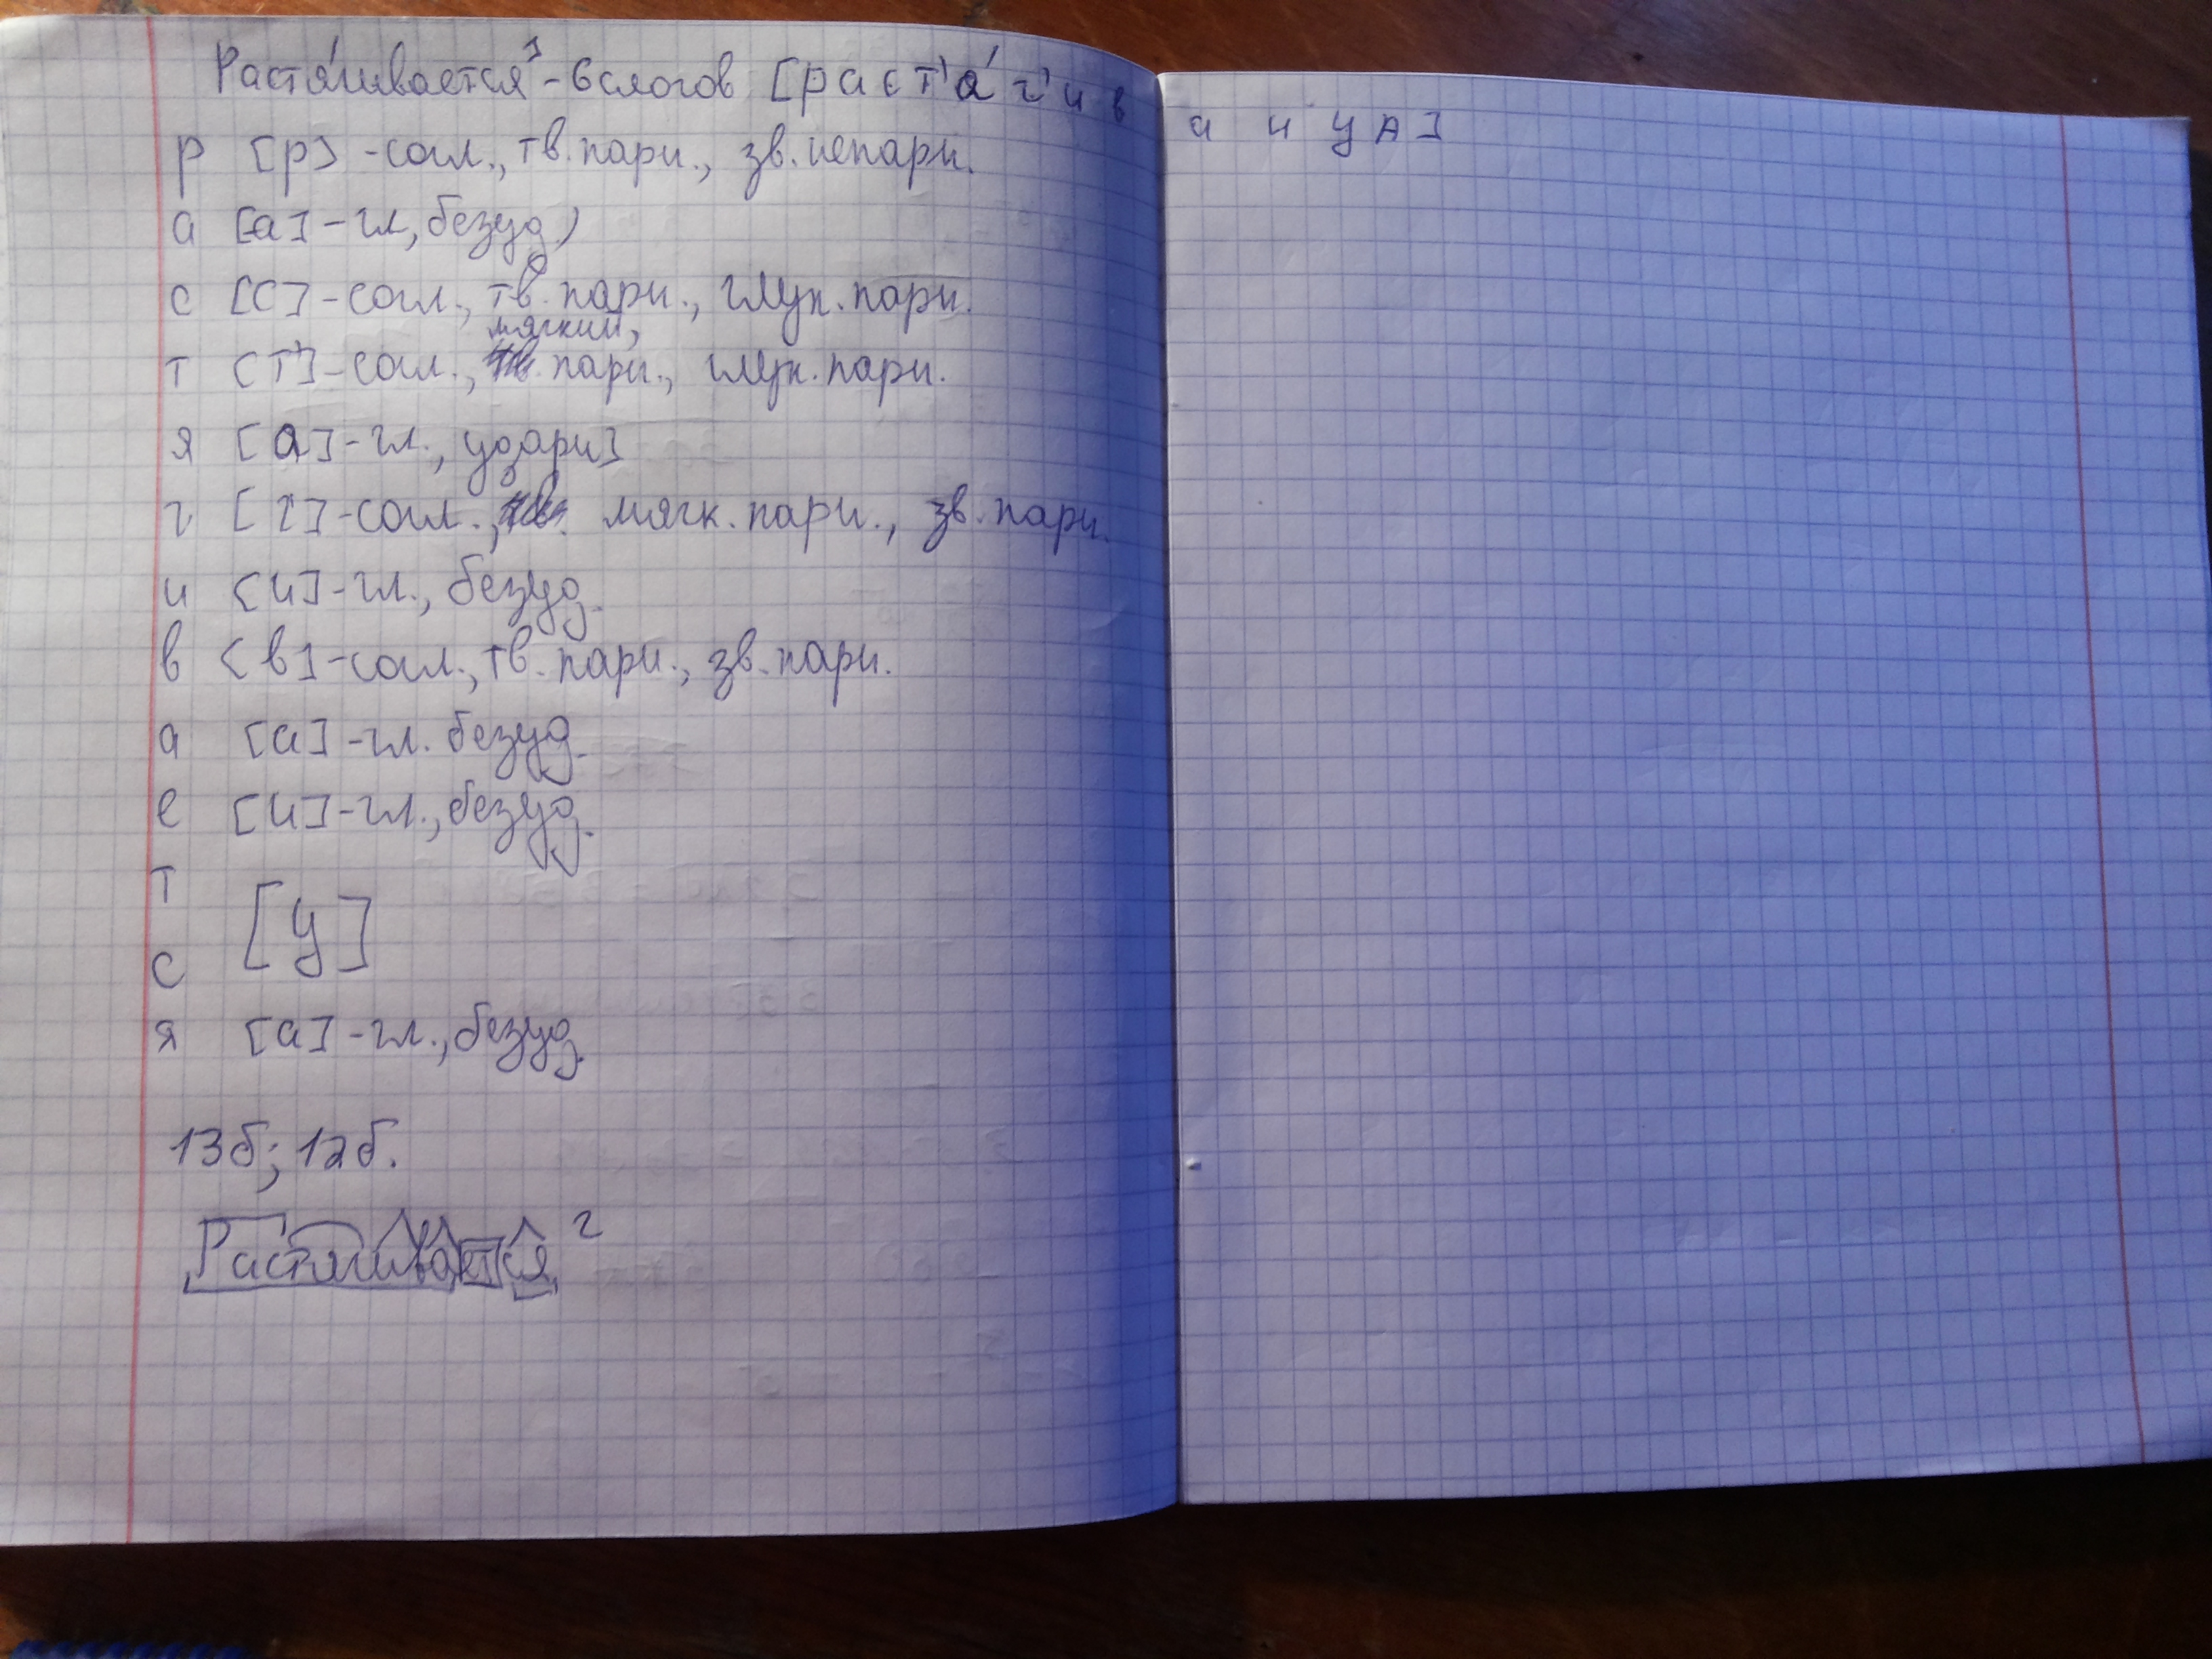 Растя́гивается¹ - 6 слогов [раст'а́г'ив а и ц а]
р [р] - согл., тв. парн., зв. непарн.
а [а] - гл, безуд)
с [с] - согл., тв. парн., глух. парн.
мягкий,
т [т'] - согл., парн., глух. парн.
я [а] - гл., ударн]
г [г] - согл., мягк. парн., зв. парн.
и [и] - гл., безуд.
в [в] - согл., тв. парн., зв. парн.
а [а] - гл. безуд.
е [и] - гл., безуд.
т
[ц]
с
я [а] - гл., безуд.
13б; 12б.
Растягивается ²